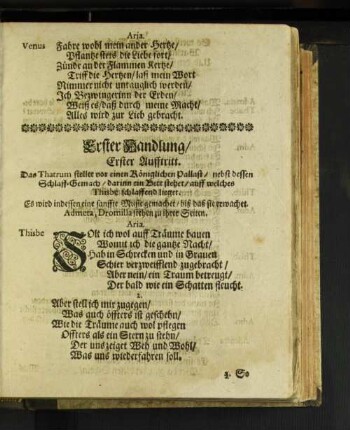 Aria.
Venus Fahre wohl mein ander Hertze/
Pflantze stets die Liebe fort/
Zünde an der Flammen Kertze/
Triff die Hertzen/ laß mein Wort
Nimmer nicht untauglich werden/
Ich Bezwingerinn der Erden/
Weiß es/ daß durch meine Macht/
Alles wird zur Lieb gebracht.
Erster Handlung/
Erster Aufftritt.
Das Theatrum stellet vor einen Königlichen Pallast/ nebst dessen
Schlaff-Gemach/ darinn ein Bett stehet/ auff welches
Thisbe schlaffend lieget.
Es wird indessen eine sanffte Music gemachet/ biß daß sie erwachet.
Admera, Dromilla stehen zu ihrer Seiten.
Aria.
Thisbe Solt ich wol auff Träume bauen
Womit ich die gantze Nacht/
Hab in Schrecken und in Grauen
Schier verzweifflend zugebracht/
Aber nein/ ein Traum betreugt/
Der bald wie ein Schatten fleucht.
2.
Aber stell ich mir zugegen/
Was auch öffters ist geschehn/
Wie die Träume auch wol pflegen
Offters als ein Stern zu stehn/
Der uns zeiget Weh und Wohl/
Was uns wiederfahren soll.
3. So